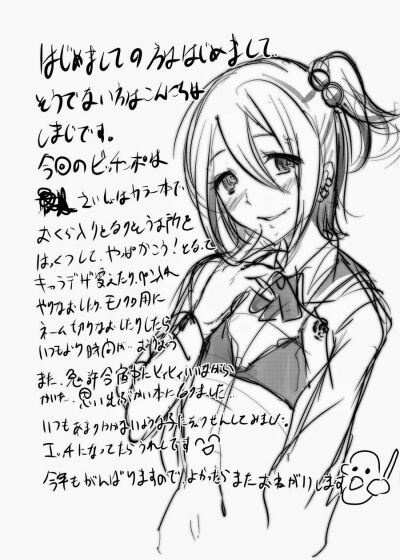 はじめましての方ははじめまして
そうでない方はこんにちは
しまじです。
今回のビッチポは
さいしょはカラー本で
おくら入りとなりそうな所を
はっくつして、やっぱかこう!となって
キャラデザ変えたり、ペン入れ
やりなおしたり、モノクロ用に
ネーム切りなおしたりしたら
いつもより時間が
また、免許合宿中にヒィヒィいいながら
かいた、思い出ぶかい本になりました…
いつもあまりかかないような子にちょうせんしてみました。
エッチになってたらうれしいです
今年もがんばりますので、よかったらまたおねがいします